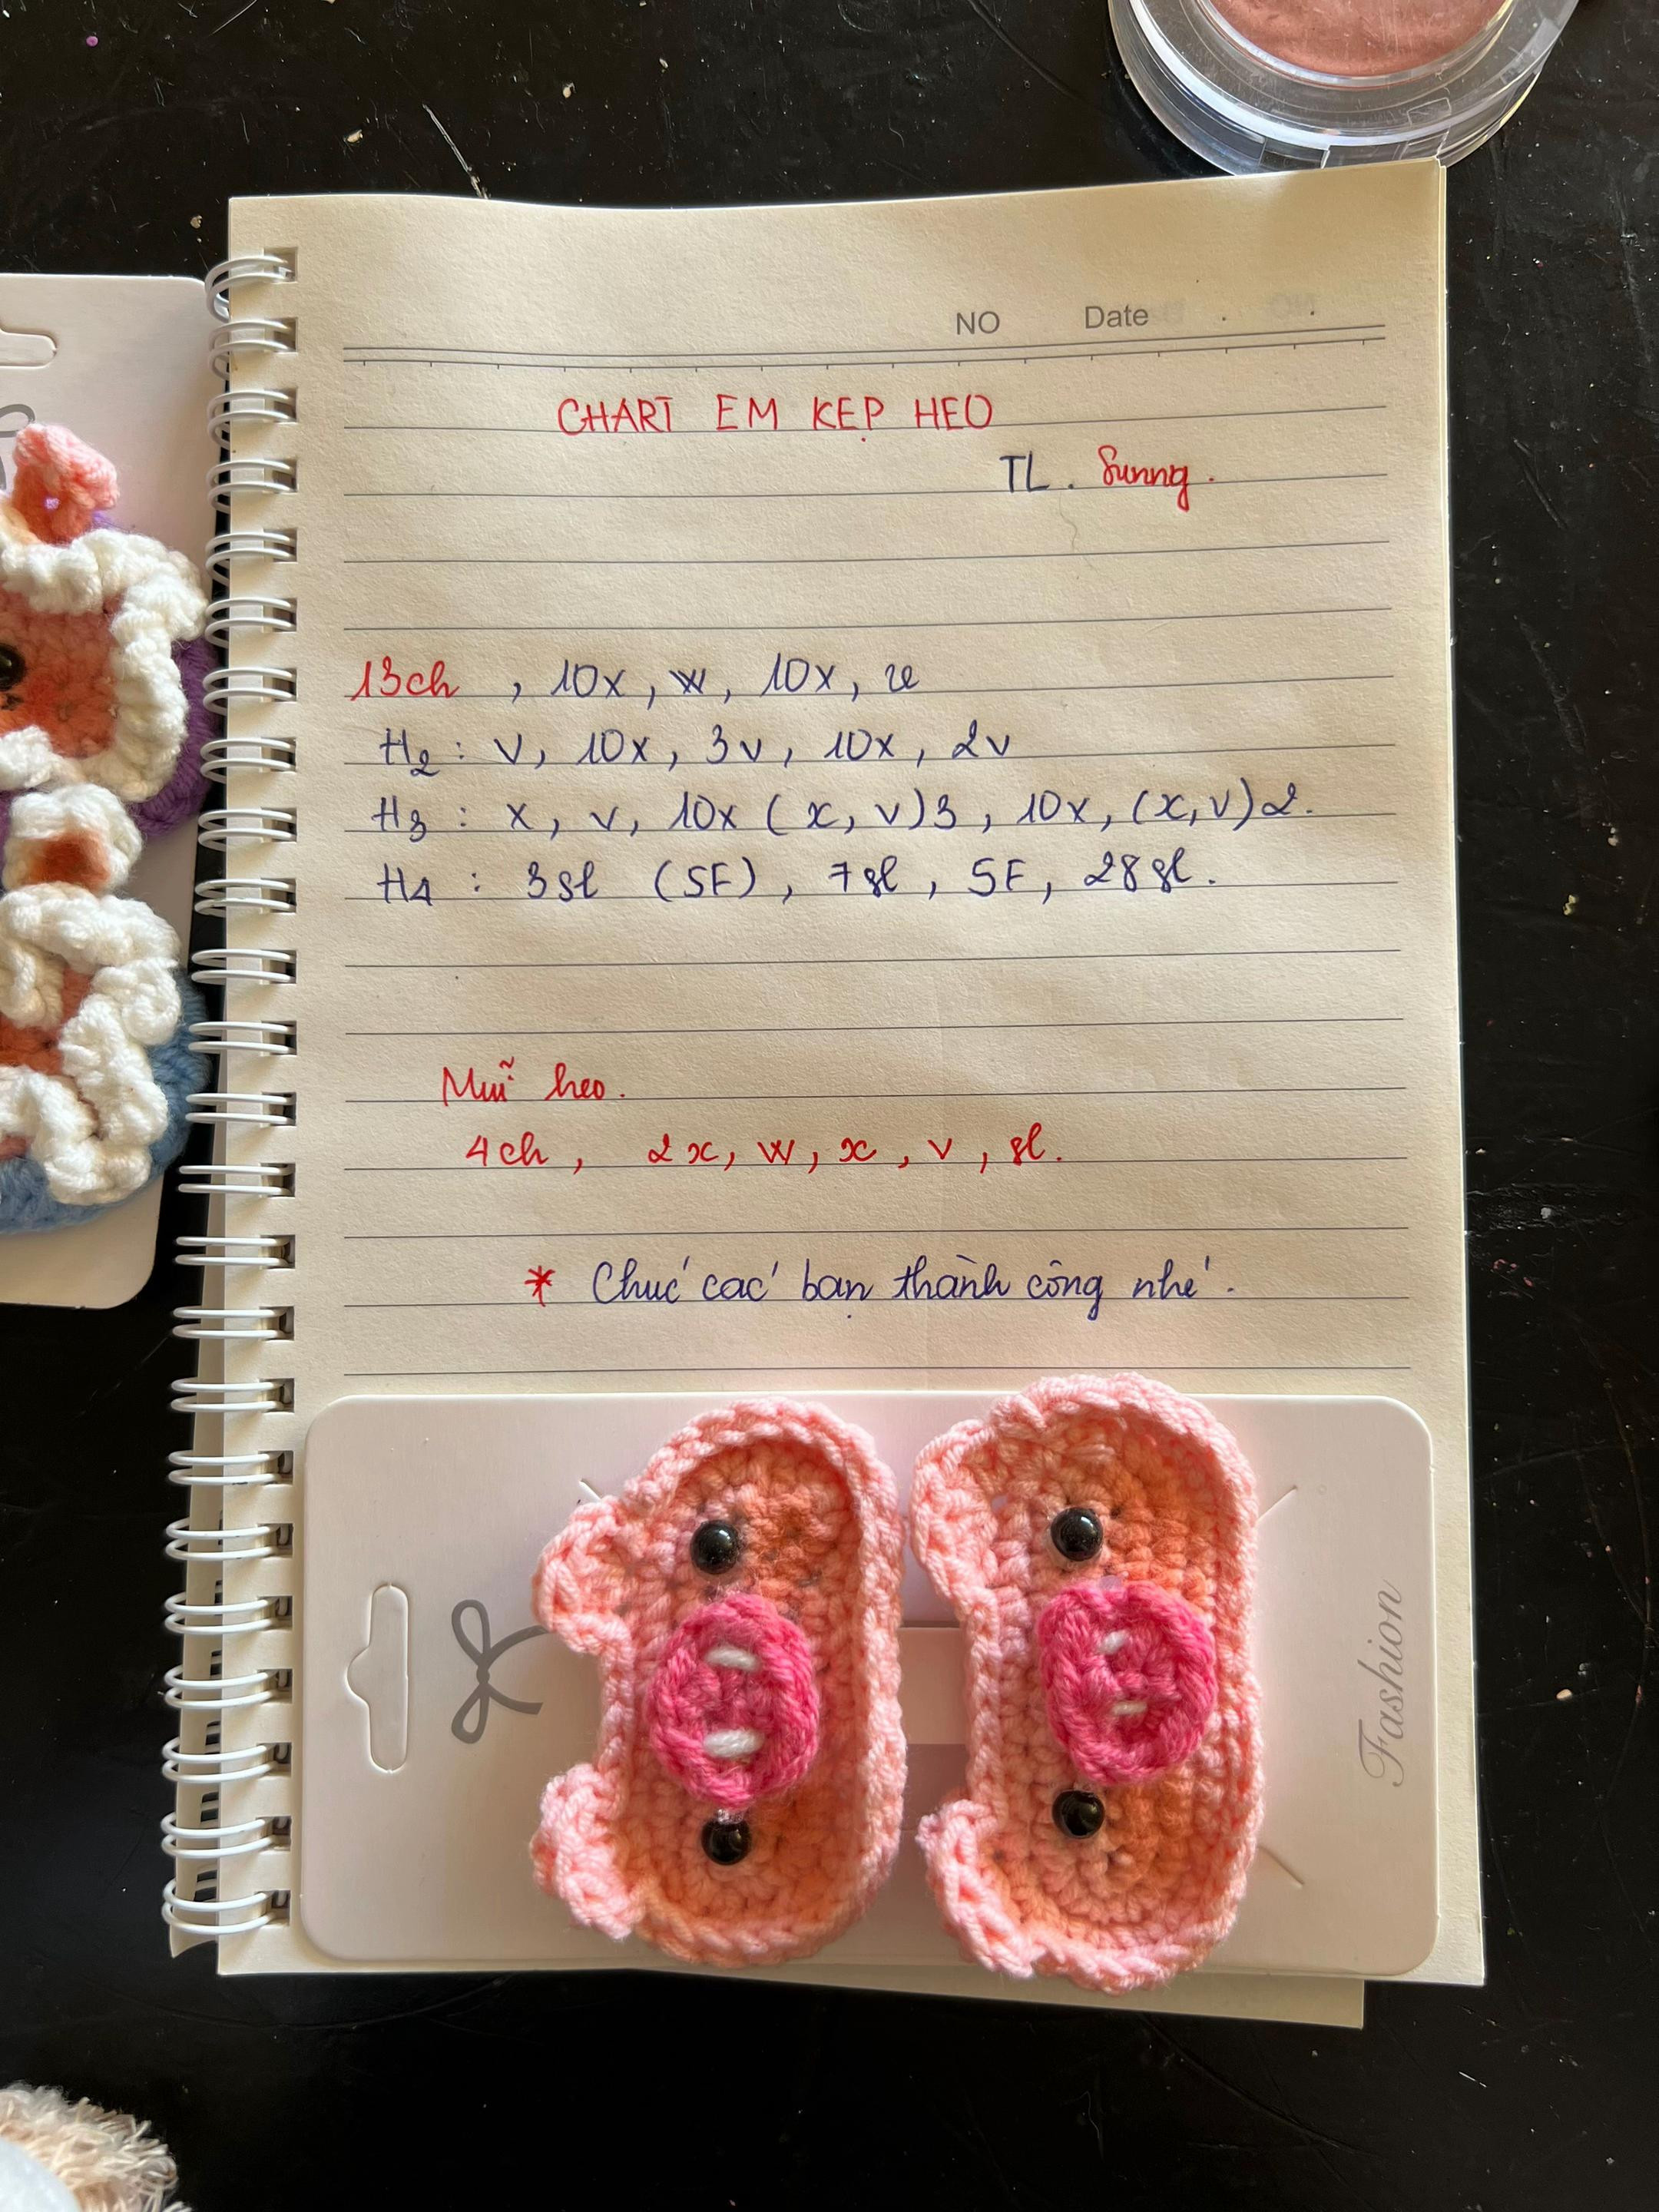 NO Date
CHART EM KẸP HEO
TL. Sunng.
13ch , 10x, w, 10x, v
H2 : v, 10x, 3v, 10x, 2v
H3 : x, v, 10x (x, v)3, 10x, (x, v)2.
H4 : 3sl (5F), 7sl, 5F, 28sl.
Mũi heo.
4ch, 2x, w, x, v, sl.
* Chúc các bạn thành công nhé.
Fashion